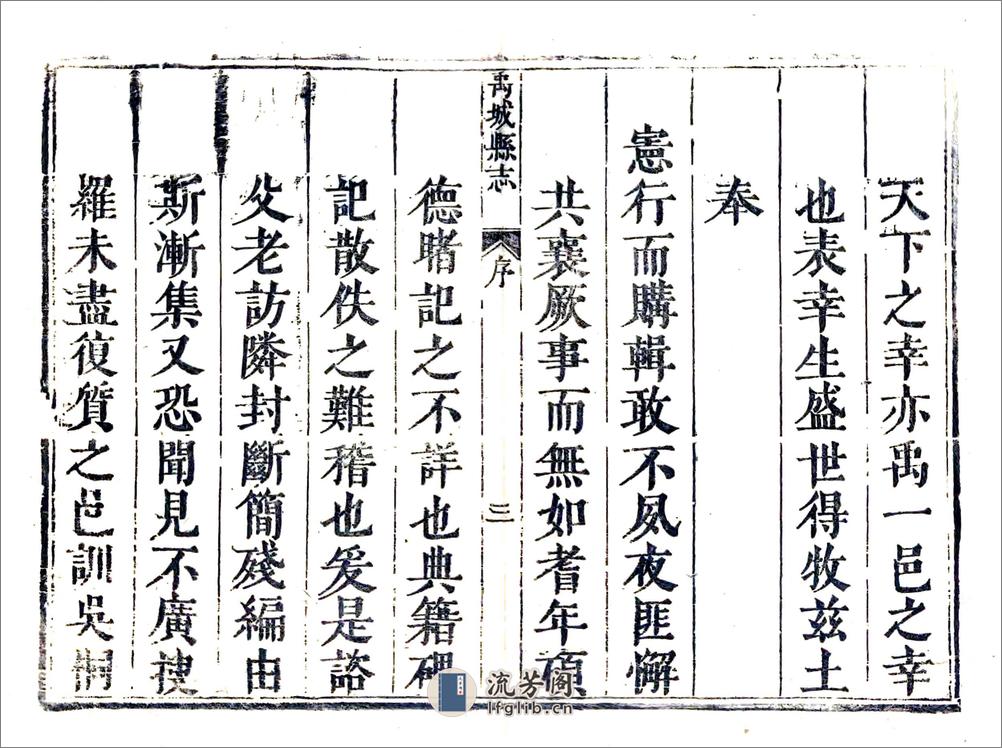 天下之幸亦禹一邑之幸
也表幸生盛世得牧兹土
奉
憲行而購輯敢不夙夜匪懈
共襄厥事而無如耆年碩
禹城縣志
序
三
德睹記之不詳也典籍碑
記散佚之難稽也爰是諮
父老訪隣封斷簡殘編由
斯漸集又恐聞見不廣搜
羅未盡復質之邑訓吳
流芳阁
lfglib.cn